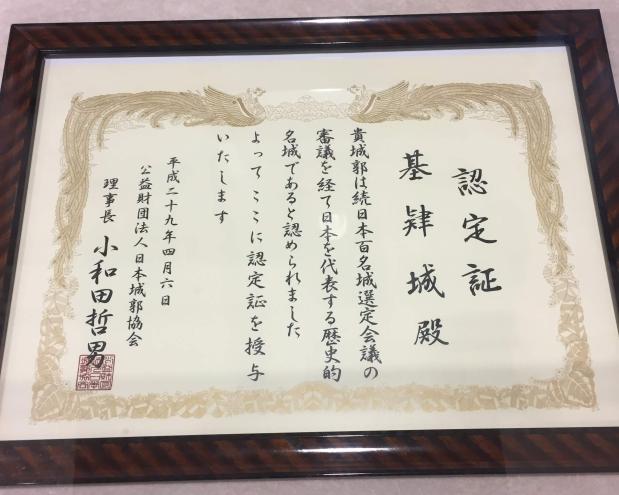 認定証
基肄城殿
貴城郭は続日本百名城選定会議の
審議を経て日本を代表する歴史的
名城であると認められました
よってここに認定証を授与
いたします
平成二十九年四月六日
公益財団法人日本城郭協会
理事長 小和田哲男